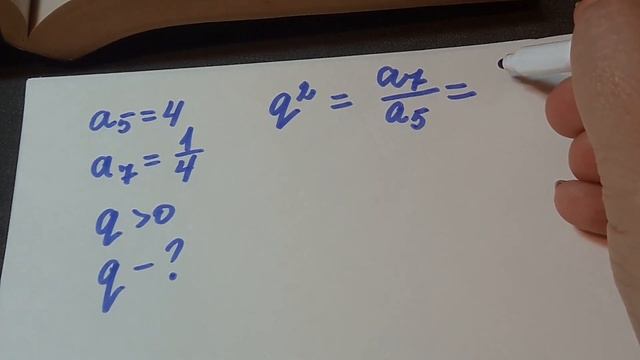 a₅ = 4
a₇ = 1/4
q > 0
q - ?
q² = a₇/a₅ =